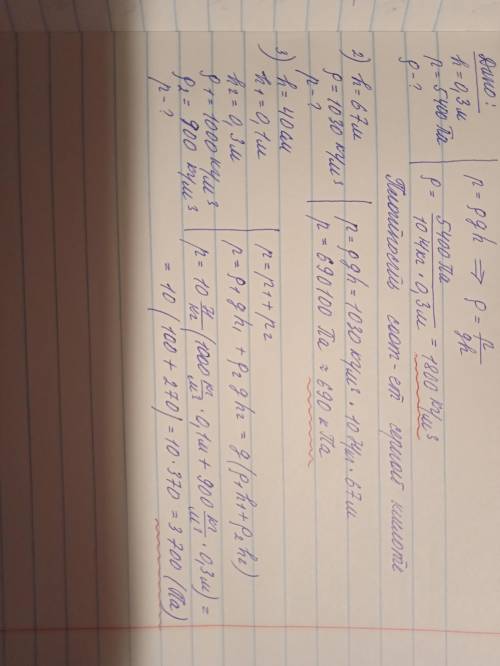 Дано:
h = 0,3 м
p = 5400 Па
ρ - ?
p = ρgh ⇒ ρ = p/gh
ρ = 5400 Па / 10 Н/кг · 0,3 м = 1800 кг/м³
Плотность соот-ет серной кислоте
2) h = 67 м
ρ = 1030 кг/м³
p - ?
p = ρgh = 1030 кг/м³ · 10 Н/кг · 67 м
p = 690100 Па ≈ 690 кПа
3) h = 40 см
h₁ = 0,1 м
h₂ = 0,3 м
ρ₁ = 1000 кг/м³
ρ₂ = 900 кг/м³
p - ?
p = p₁ + p₂
p = ρ₁gh₁ + ρ₂gh₂ = g(ρ₁h₁ + ρ₂h₂)
p = 10 Н/кг (1000 кг/м³ · 0,1 м + 900 кг/м³ · 0,3 м) =
= 10 (100 + 270) = 10 · 370 = 3700 (Па)